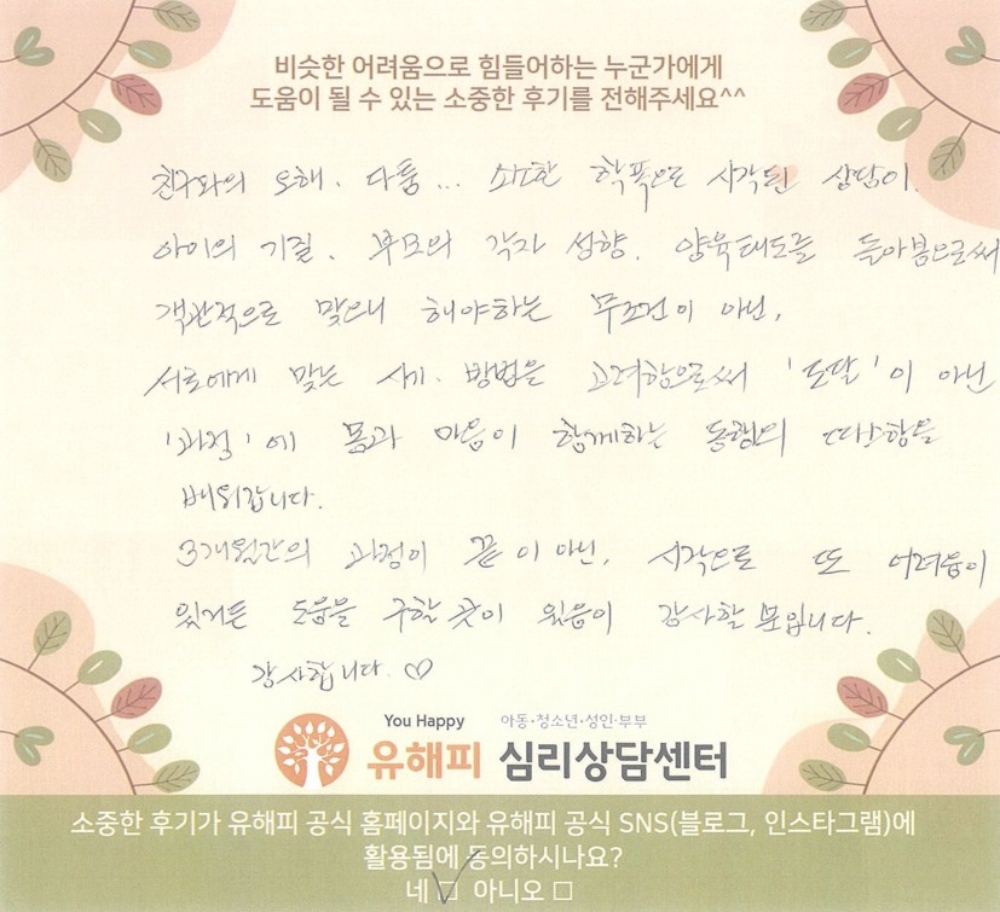 비슷한 어려움으로 힘들어하는 누군가에게
도움이 될 수 있는 소중한 후기를 전해주세요^^
친구와의 오해. 다툼... 소소한 학폭으로 시작된 상담이
아이의 기질. 부모의 각자 성향. 양육태도를 돌아봄으로써
객관적으로 맞으니 해야하는 무조건이 아닌,
서로에게 맞는 시기. 방법을 고려함으로써 '도달'이 아닌
'과정'에 몸과 마음이 함께하는 동행의 따스함을
배워갑니다.
3개월간의 과정이 끝이 아닌, 시작으로 또 어려움이
있거든 도움을 구할 곳이 있음이 감사할 뿐입니다.
감사합니다. ♡
You Happy 아동·청소년·성인·부부
유해피 심리상담센터
소중한 후기가 유해피 공식 홈페이지와 유해피 공식 SNS(블로그, 인스타그램)에
활용됨에 동의하시나요?
네 ☑ 아니오 □